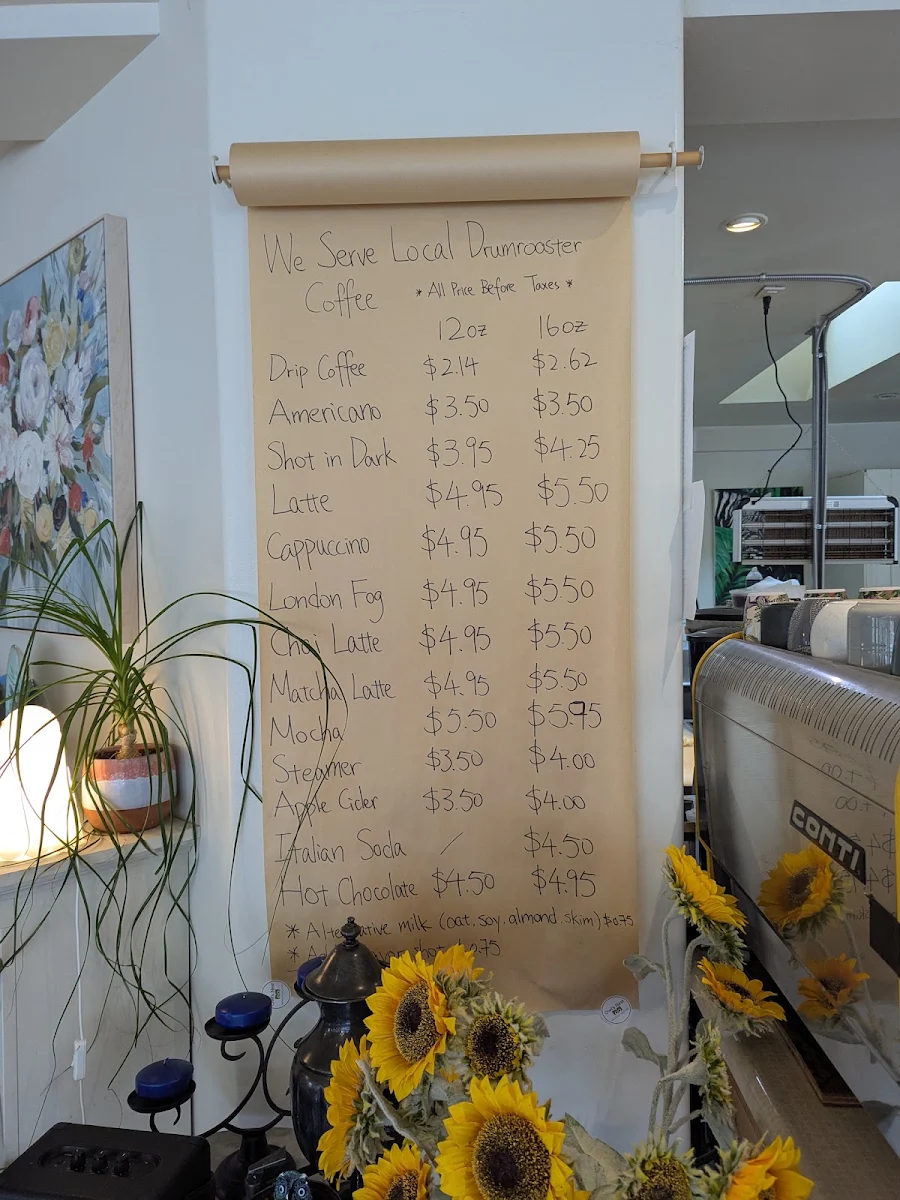 We Serve Local Drumroaster
Coffee * All Price Before Taxes *
12oz 16oz
Drip Coffee $2.14 $2.62
Americano $3.50 $3.50
Shot in Dark $3.95 $4.25
Latte $4.95 $5.50
Cappuccino $4.95 $5.50
London Fog $4.95 $5.50
Chai Latte $4.95 $5.50
Matcha Latte $4.95 $5.50
Mocha $5.50 $5.95
Steamer $3.50 $4.00
Apple Cider $3.50 $4.00
Italian Soda / $4.50
Hot Chocolate $4.50 $4.95
* Alternative milk (oat, soy, almond, skim) $0.75
* shot
CONTI